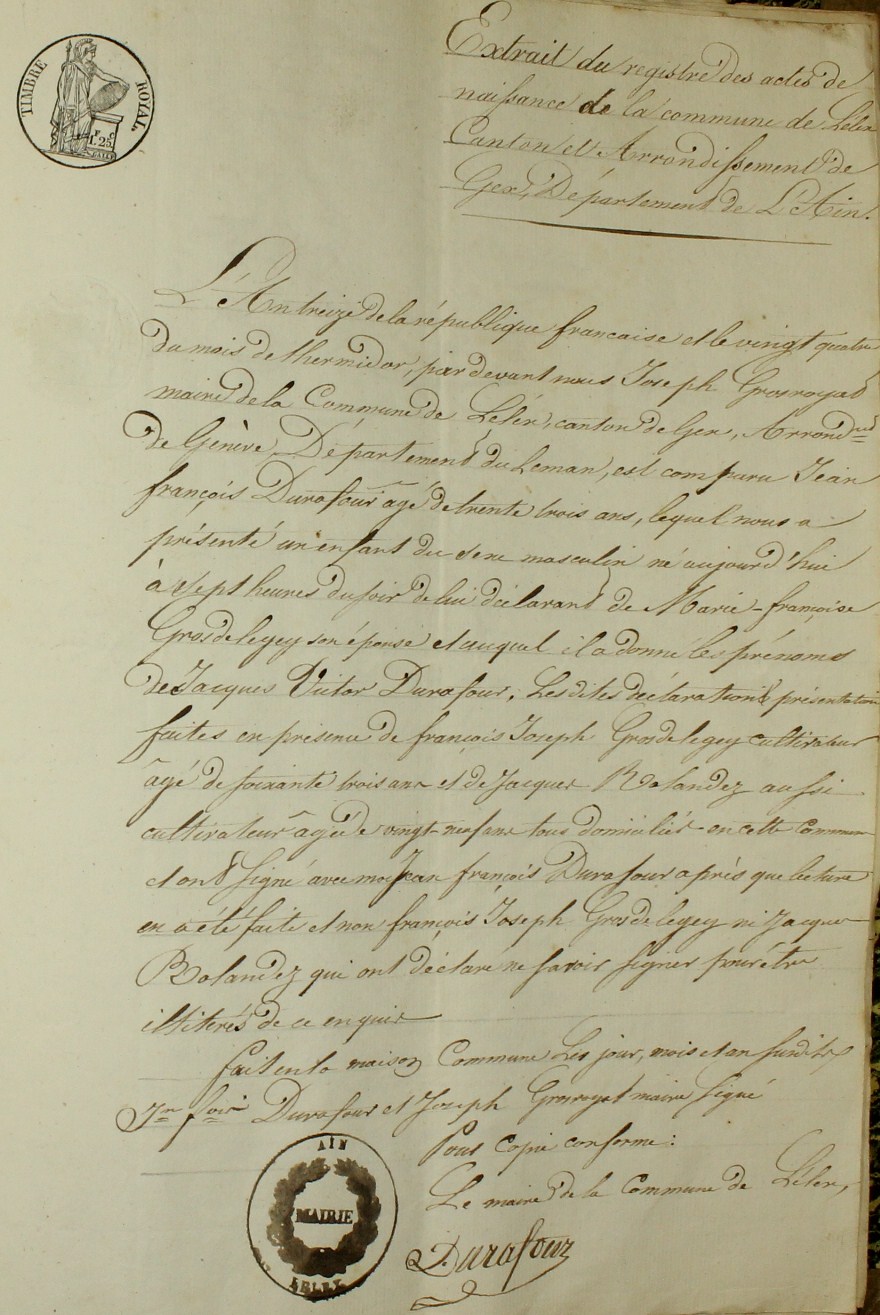 TIMBRE ROYAL.
F. C.
L. 25.
Extrait du registre des actes de
naissance de la commune de Lélex
Canton et Arrondissement de
Gex, Département de L'Ain.
L'An treize de la république francaise et le vingt quatre
du mois de thermidor, par devant nous Joseph Grosroyat
maire de la Commune de Lélex, canton de Gex, Arrond.
de Génève, Département du Leman, est comparu Jean
françois Durafour âgé de trente trois ans, lequel nous a
présenté un enfant du sexe masculin né aujourd'hui
à sept heures du soir de lui déclarant de Marie-françoise
Grosdelegey son épouse et auquel il a donné les prénoms
de Jacques Victor Durafour, Lesdites déclaration & présentation
faites en présence de françois Joseph Grosdelegey cultivateur
âgé de soixante trois ans et de Jacques Rolandez aussi
cultivateur âgé de vingt-neuf ans tous domiciliés en cette Commune
et ont signé avec moi Jean françois Durafour après que lecture
en a été faite et non françois Joseph Grosdelegey ni Jacques
Rolandez qui ont déclaré ne savoir signer pour être
illiterés de ce enquis
fait en la maison Commune Les jour, mois et an susdits
Jn. fois Durafour et Joseph Grosroyat maire signé
Pour Copie conforme:
Le maire de la Commune de Lélex,
Durafour
AIN
MAIRIE
LELEX